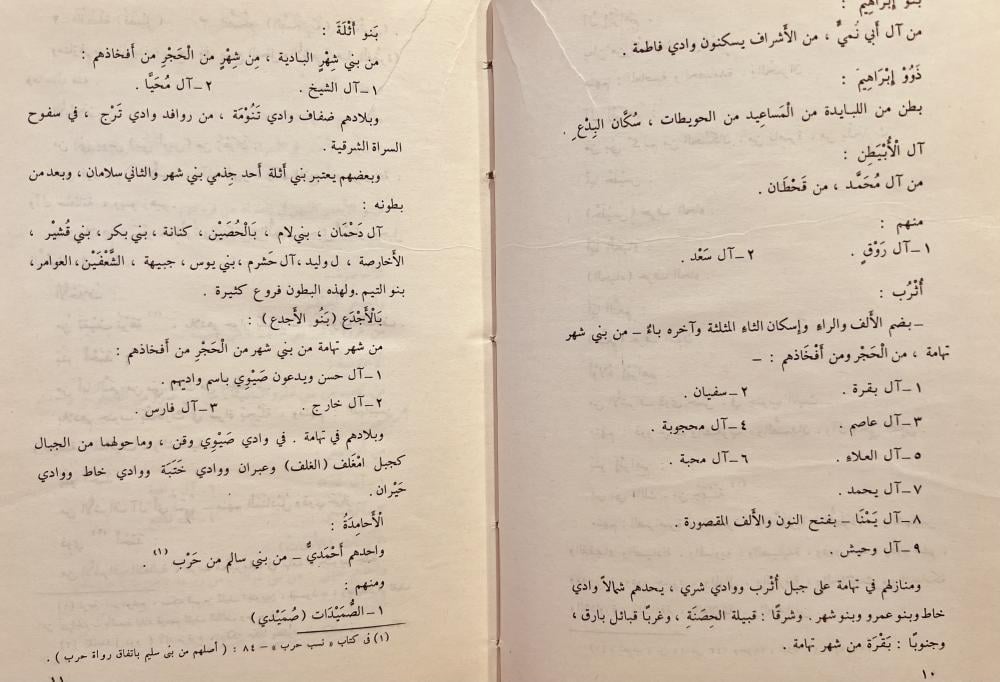 بنو إبْرَاهِيمَ :
من آل أَبي نُمَيٍّ ، من الأَشراف يسكنون وادي فاطمة .
ذَوُوْ إبْرَاهِيمَ :
بطن من اللبايدة من الْمَساعِيد من الحويطات ، سُكَّان البِدْعِ .
آل الْأُبَيْطِن :
من آل مُحَمَّد ، من قَحْطَان .
منهم :
١ــآل رَوْقٍ . ٢ــآل سَعْد .
أَثْرُب :
ــ بضم الأَلف والراءِ وإسكان الثاءِ المثلثة وآخره باءٌ ــ من بني شهر
تهامة ، من الْحَجْر ومن أَفْخَاذهم : ــ
١ــآل بقرة . ٢ــسفيان .
٣ــآل عاصم . ٤ــآل محجوبة .
٥ــآل العلاءِ . ٦ــآل محبة .
٧ــآل يحمد .
٨ــآل يَمْنَا ــ بفتح النون والأَلف المقصورة .
٩ــآل وحيش .
ومنازلهم في تهامة على جبل أَثْرب ووادي شري ، يحدهم شمالاً وادي
خاط وبنو عمرو وبنو شهر . وشرقًا : قبيلة الحِصَنَةِ ، وغربًا قبائل بارق ،
وجنوبًا : بَقْرَة من شهر تهامة .
١٠
بَنو أَثْلَةَ :
من بني شِهْرٍ البادية ، مِن شِهْرٍ من الْحَجْرِ من أَفخاذهم :
١ــآل الشيخ . ٢ــآل مُحَيَّا .
وبلادهم ضفاف وادي تَنُوْمَة ، من روافد وادي تَرْج ، في سفوح
السراة الشرقية .
وبعضهم يعتبر بني أَثلة أَحد جِذمي بني شهر والثاني سلامان ، وبعد من
بطونه :
آل دَحْمَان ، بني لام ، بَالْحُصَيْن ، كنانة ، بني بكر ، بني قُشَيْر ،
الأَخارصة ، ل وليد ، آل حَشرم ، بني يوس ، جبيهة ، الشَّعْفَيْن ، العوامر ،
بنو التيم . ولهذه البطون فروع كثيرة .
بَالْأَجْدَع (بَنُو الأَجدع) :
من شهر تهامة من بني شهر من الْحَجْرِ من أَفخاذهم :
١ــآل حسن ويدعون صَيْوِي باسم واديهم .
٢ــآل خارج . ٣ــآل فارس .
وبلادهم في تهامة . في وادي صَيْوِي وقن ، وما حولهما من الجبال
كجبل امْغَلف (الغلف) وعبران ووادي خَتَبَة ووادي خاط ووادي
حَيْران .
الْأَحَامِدَةُ :
واحدهم أَحْمَدِيٌّ ــ من بني سالم من حَرْب (١) .
ومنهم :
١ــالصُّمَيْدَات (صُمَيْدِي)
(١) في كتاب « نسب حرب » ــ ٨٤ : ( أصلهم من بني سليم باتفاق رواة حرب ) .
١١